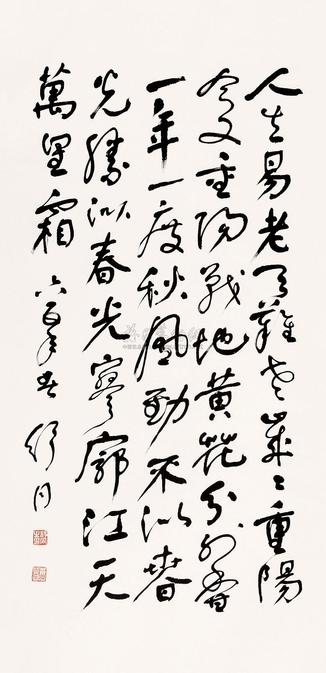 人生易老天難老歲々重陽
今又重陽戰地黃花分外香
一年一度秋風勁不似春
光勝似春光寥廓江天
萬里霜 舒同